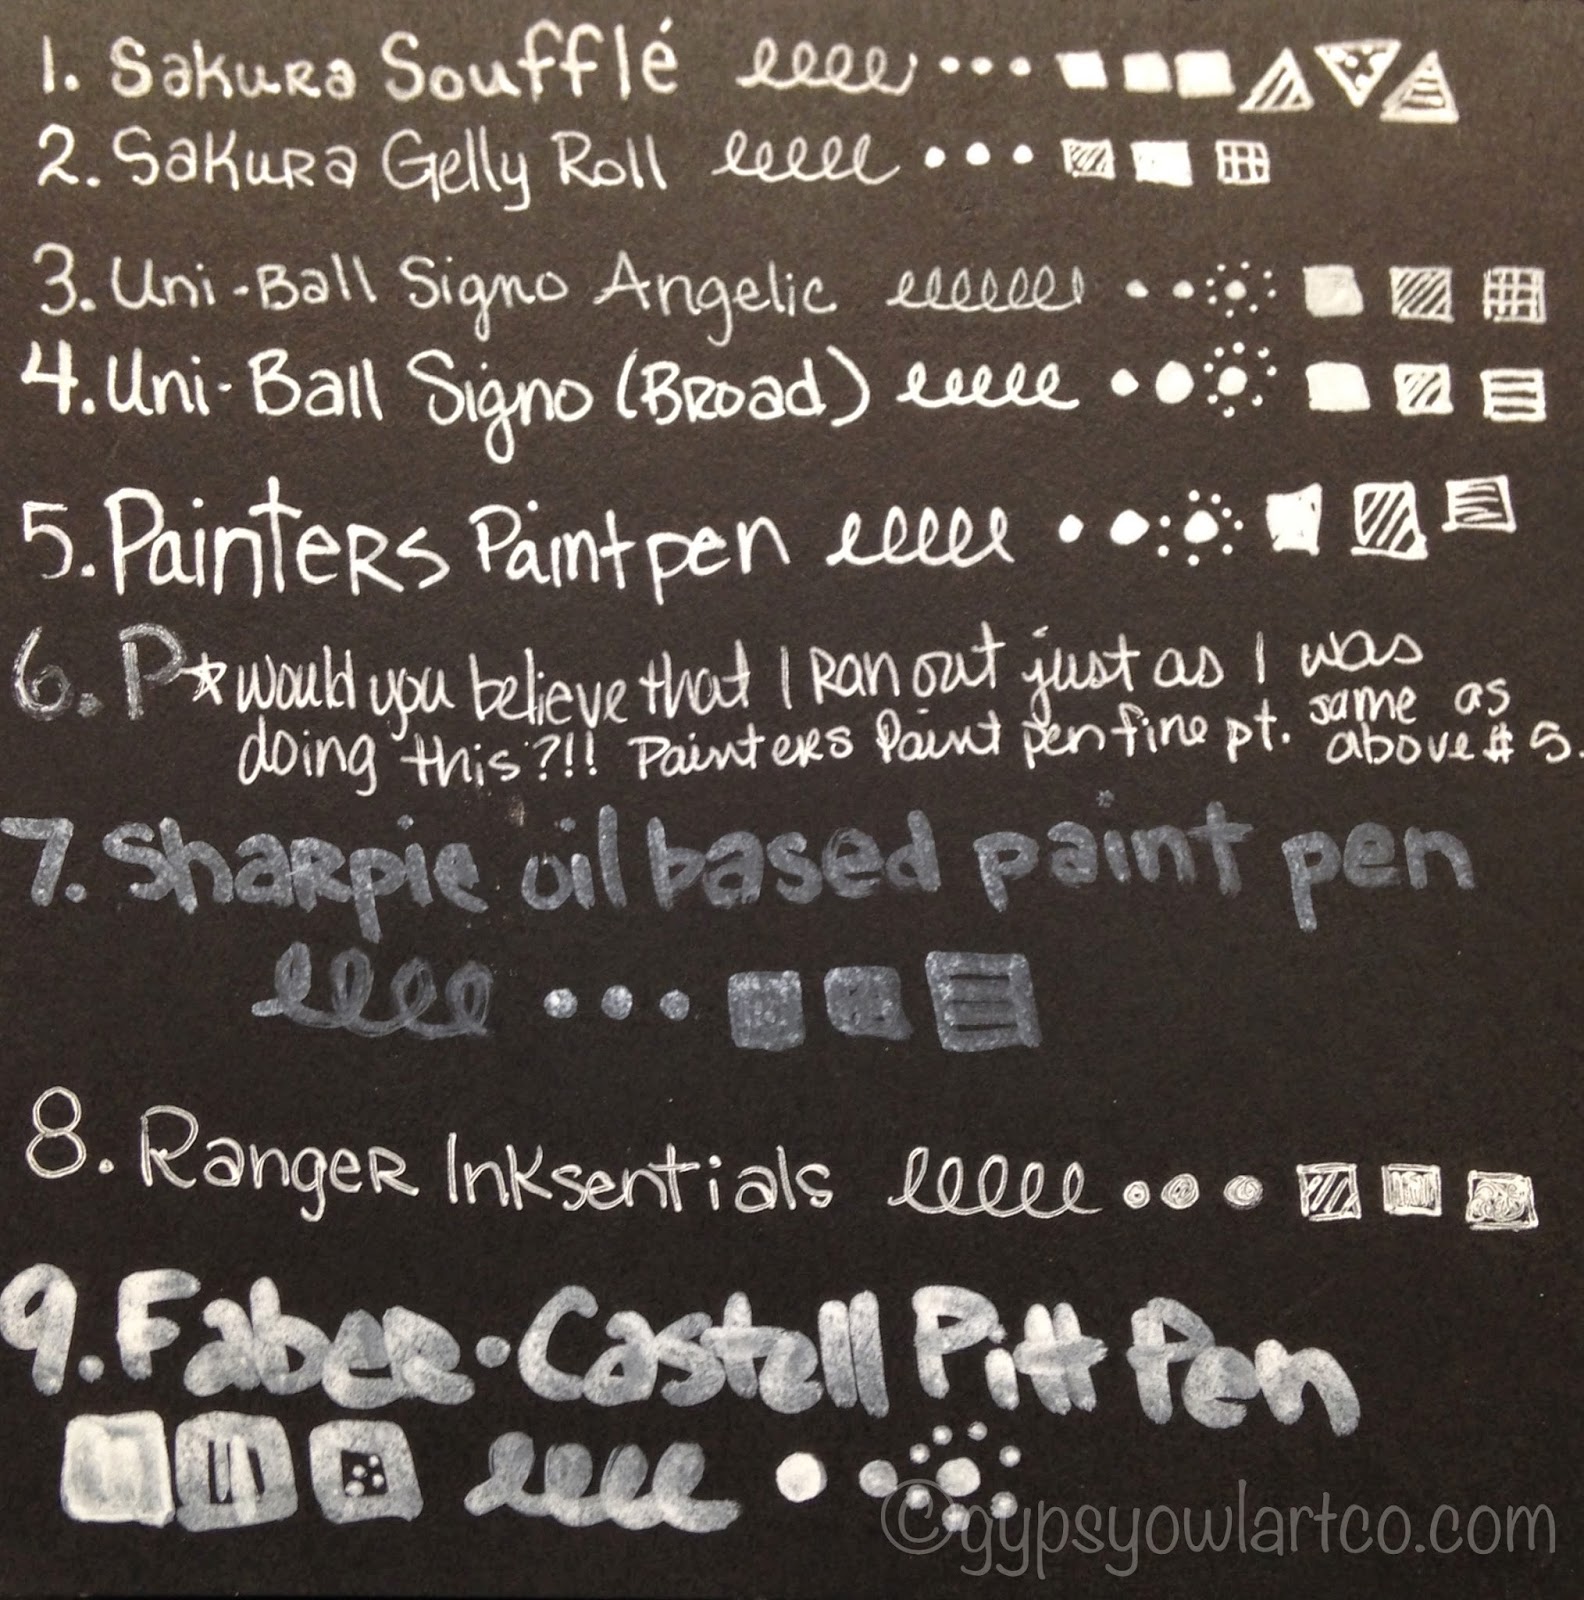 1. Sakura Soufflé
2. Sakura Gelly Roll
3. Uni-Ball Signo Angelic
4. Uni-Ball Signo (Broad)
5. Painters Paint pen
6. P* would you believe that I ran out just as I was
doing this?!! Painters Paint pen fine pt. same as
above # 5.
7. Sharpie oil based paint pen
8. Ranger Inksentials
9. Faber-Castell Pitt Pen
©gypsyowlartco.com